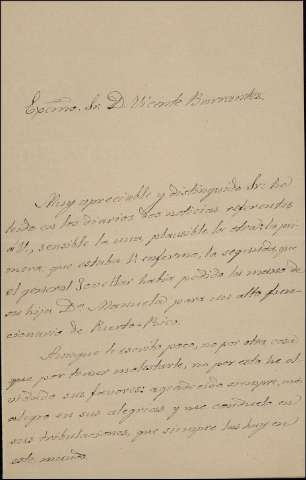 Excmo. Sr. D. Vicente Barrantes.
Muy apreciable y distinguido Sr: he
leido en los diarios dos noticias referentes
a V., sensible la una, plausible la otra: la pri-
mera, que estaba V. enfermo, la segunda, que
el general Jovellar habia pedido la mano de
su hija Da. Manuela para un alto fun-
cionario de Puerto-Rico.
Aunque le escribo poco, no por otra cosa
que por temor molestarle, no por esto he ol-
vidado sus favores: agradecido siempre, me
alegro en sus alegrias y me conduelo en
sus tribulaciones, que siempre las hay en
este mundo.